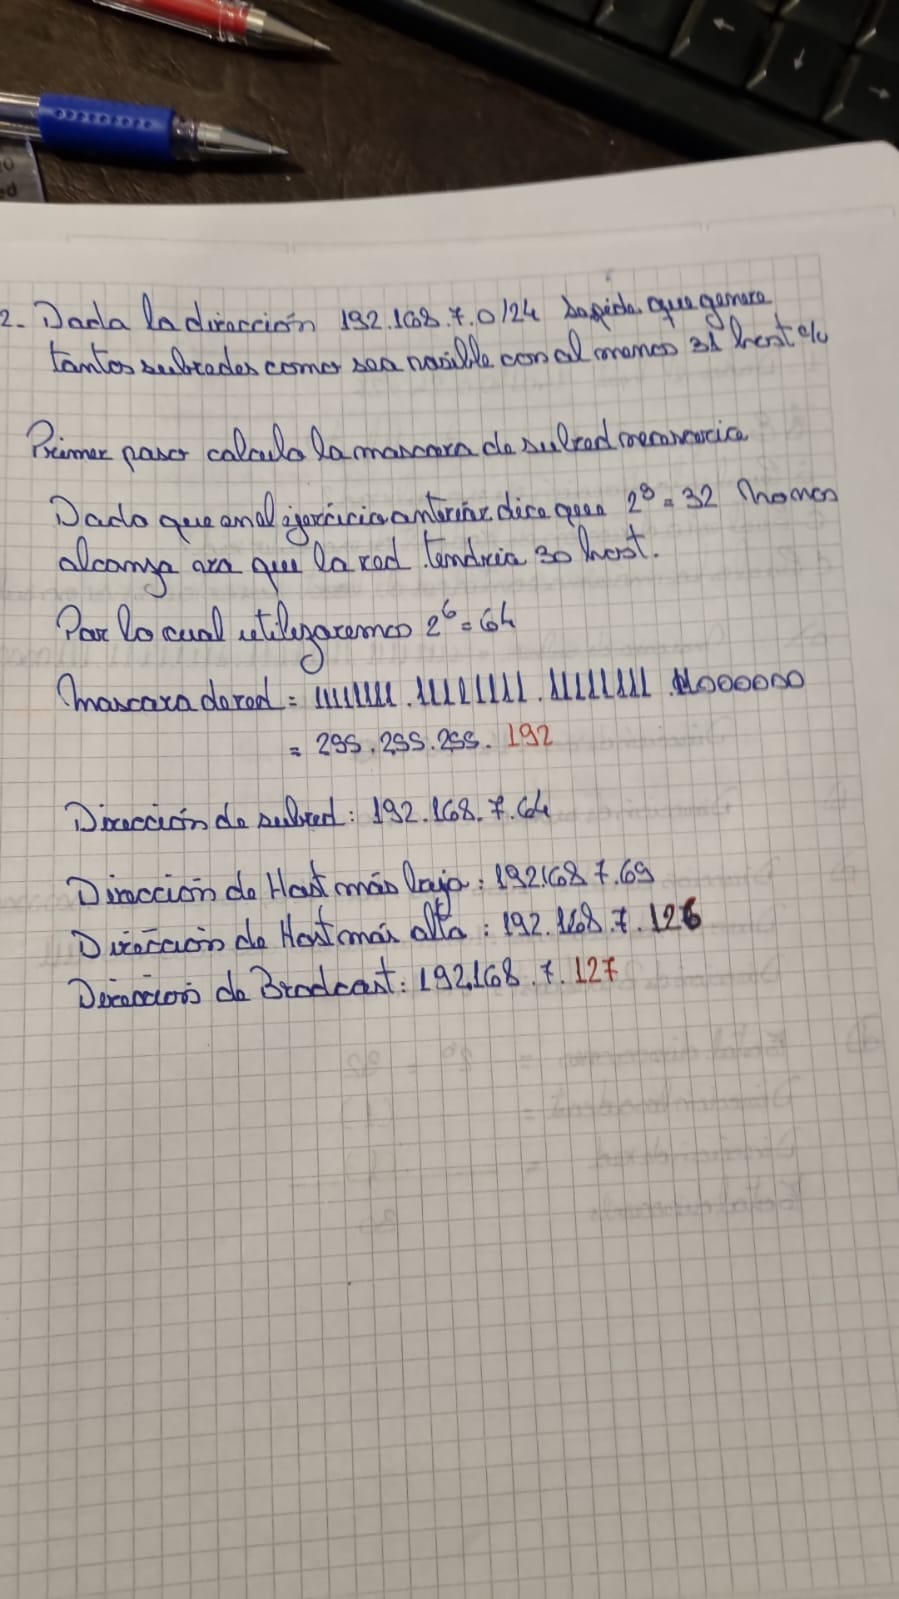 2. Dada la dirección 192.168.7.0/24 se pide que genere
tantas subredes como sea posible con al menos 31 host c/u
Primer paso calculo la mascara de subred necesaria
Dado que en el ejercicio anterior dice que 2⁵ = 32 no nos
alcanza ya que la red tendria 30 host.
Por lo cual utilizaremos 2⁶ = 64
Mascara de red = 11111111.11111111.11111111.11000000
= 255.255.255.192
Dirección de subred: 192.168.7.64
Dirección de Host más baja: 192.168 7.65
Dirección de Host más alta: 192.168.7.126
Dirección de Brodcast: 192.168.7.127